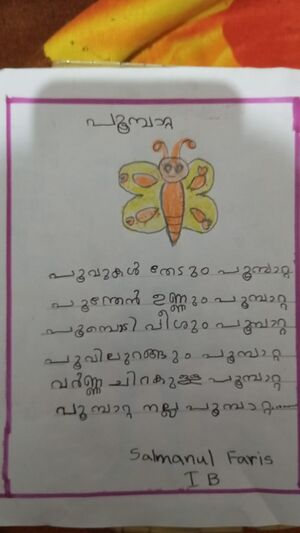 പൂമ്പാറ്റ
പൂവുകൾ തേടും പൂമ്പാറ്റ
പൂന്തേൻ ഉണ്ണും പൂമ്പാറ്റ
പൂമ്പൊടി പീശും പൂമ്പാറ്റ
പൂവിലുറങ്ങും പൂമ്പാറ്റ
വർണ്ണ ചിറകുള്ള പൂമ്പാറ്റ
പൂമ്പാറ്റ നല്ല പൂമ്പാറ്റ....
Salmanul Faris
I B